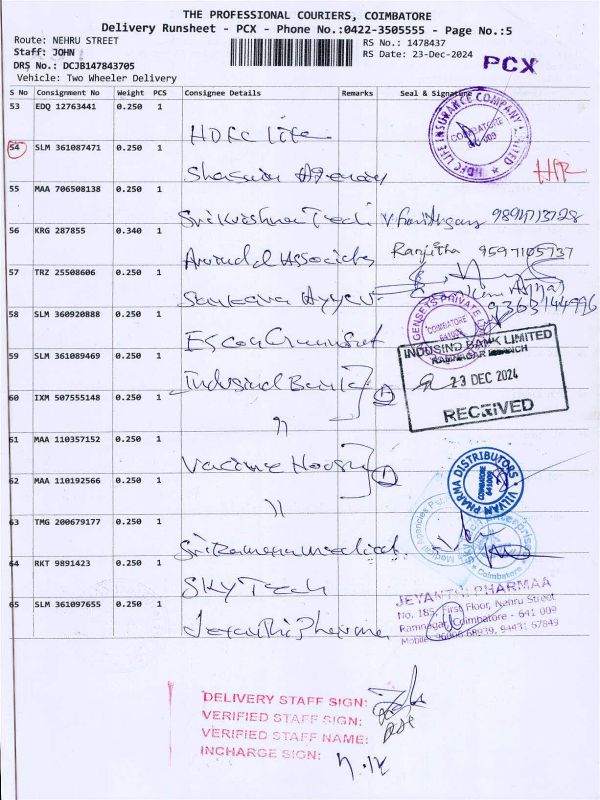 THE PROFESSIONAL COURIERS, COIMBATORE
Delivery Runsheet - PCX - Phone No.:0422-3505555 - Page No.:5
Route: NEHRU STREET
RS No.: 1478437
Staff: JOHN
RS Date: 23-Dec-2024
PCX
DRS No.: DCJB147843705
Vehicle: Two Wheeler Delivery
S No Consignment No Weight PCS Consignee Details Remarks Seal & Signature
53 EDQ 12763441 0.250 1 HDFC Life
HDFC LIFE INSURANCE COMPANY LIMITED
COIMBATORE
54 SLM 361087471 0.250 1
55 MAA 706508138 0.250 1 Sri Krishna Tech
56 KRG 287855 0.340 1 Associates
Ranjitha 9597105737
57 TRZ 25508606 0.250 1
9363144996
58 SLM 360920888 0.250 1
GENSETS PRIVATE
COIMBATORE
59 SLM 361089469 0.250 1 Indusind Bank
INDUSIND BANK LIMITED
RAMNAGAR BRANCH
23 DEC 2024
RECEIVED
60 IXM 507555148 0.250 1 "
61 MAA 110357152 0.250 1 Vaccine House
62 MAA 110192566 0.250 1 "
VILVAN PHARMA DISTRIBUTORS
COIMBATORE
641009
63 TMG 200679177 0.250 1 Sri Ramana medical
Coimbatore
64 RKT 9891423 0.250 1 SKY Tech
65 SLM 361097655 0.250 1 Jeyanthi Pharma
JEYANTHI PHARMAA
No. 185, First Floor, Nehru Street
Ramnagar, Coimbatore - 641 009
Mobile: 96006 68939, 94431 67849
DELIVERY STAFF SIGN:
VERIFIED STAFF SIGN:
VERIFIED STAFF NAME:
INCHARGE SIGN: